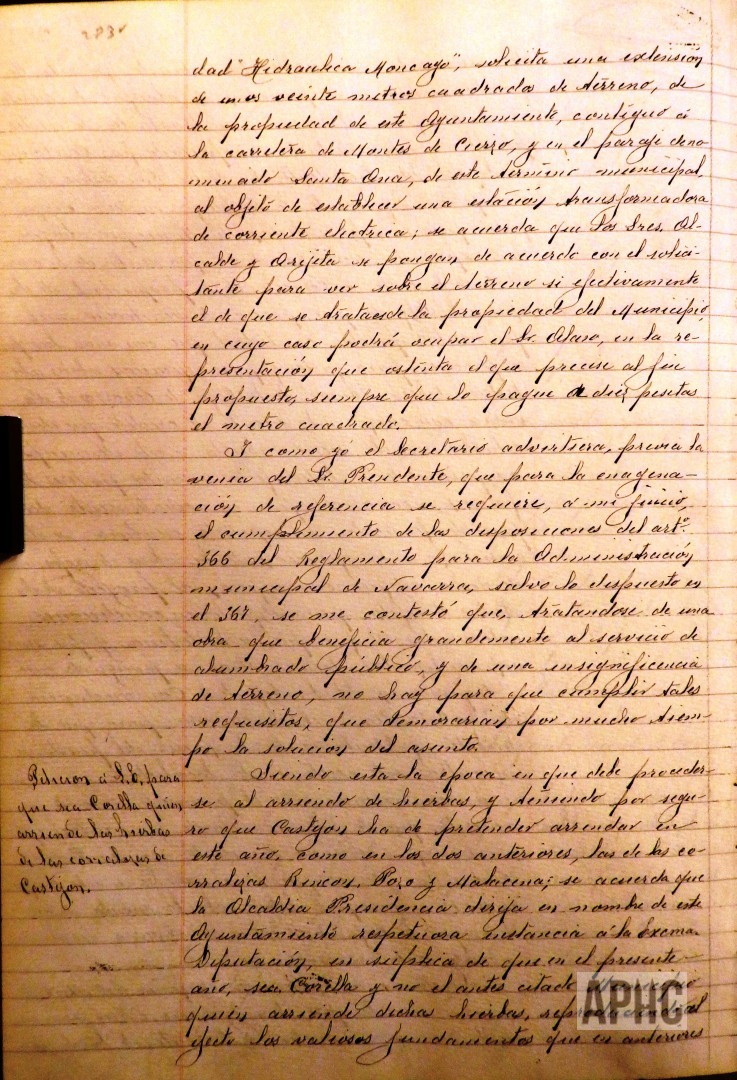 283v
dad "Hidraulica Moncayo", solicita una extensión
de unos veinte metros cuadrados de terreno, de
la propiedad de este Ayuntamiento, contiguo á
la carretera de Montes de Cierzo, y en el paraje deno-
minado Santa Ana, de este término municipal,
al objeto de establecer una estación transformadora
de corriente electrica; se acuerda que los Sres. Al-
calde y Arijita se pongan de acuerdo con el solici-
tante para ver sobre el terreno si efectivamente
el de que se trata es de la propiedad del Municipio,
en cuyo caso podrá ocupar el Sr. Alava, en la re-
presentación que ostenta el que precise al fin
propuesto, siempre que lo pague a diez pesetas
el metro cuadrado.
Y como yó el Secretario advirtiera, previa la
venia del Sr. Presidente, que para la enagena-
ción de referencia se requiere, á mi juicio,
el cumplimiento de las disposiciones del artº.
366 del Reglamento para la Administración
municipal de Navarra, salvo lo dispuesto en
el 367, se me contestó que, tratandose de una
obra que beneficia grandemente al servicio de
alumbrado público, y de una insignificencia
de terreno, no hay para que cumplir tales
requisitos, que demorarian por mucho tiem-
po la solucion del asunto.
Peticion á S.E. para
que sea Corella quien
arriende las hierbas
de las corralizas de
Castejon.
Siendo esta la epoca en que debe proceder-
se al arriendo de hierbas, y teniendo por segu-
ro que Castejon ha de pretender arrendar en
este año, como en los dos anteriores, las de las co-
rralizas Rincon, Pozo y Malacena; se acuerda que
la Alcaldia Presidencia dirija en nombre de este
Ayuntamiento respetuosa instancia á la Excma.
Diputación, en súplica de que en el presente
año, sea Corella y no el antes citado Municipio
quien arriende dichas hierbas, reproduciendo al
efecto los valiosos fundamentos que en anteriores
APHC